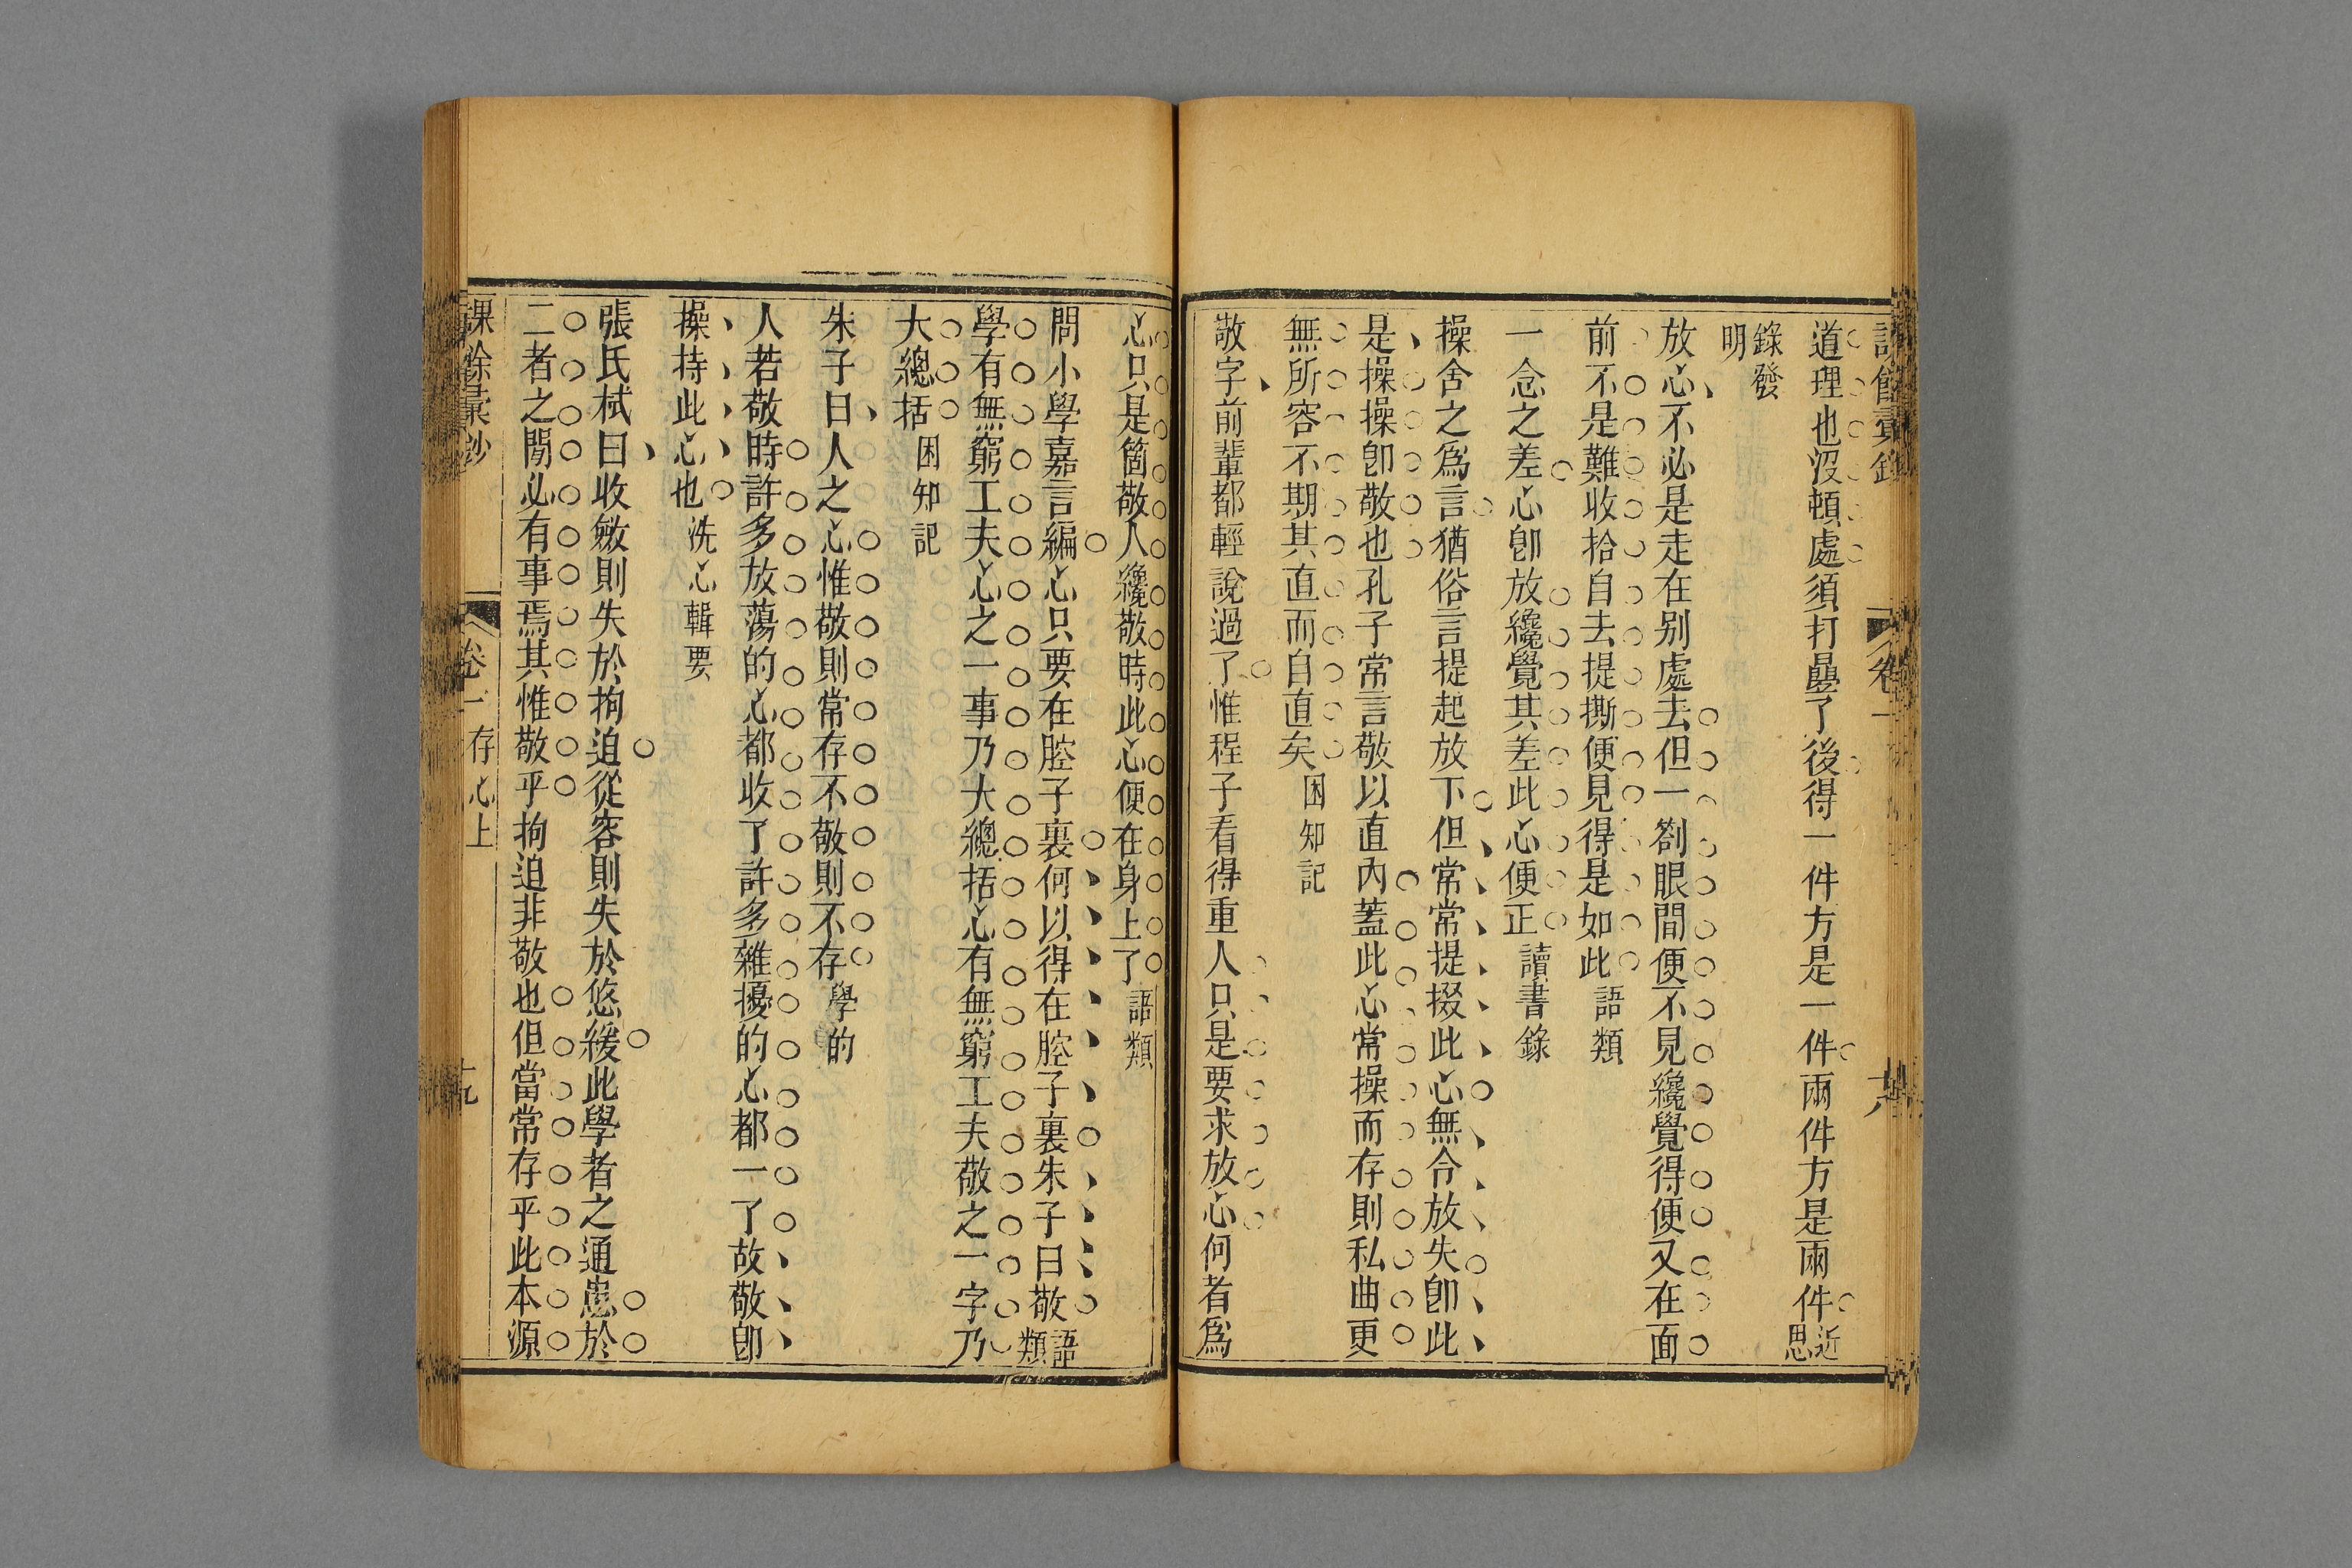 道理也沒頓處須打疊了後得一件方是一件兩件方是兩件近思
錄發明
放心不必是走在别處去但一劄眼間便不見纔覺得便又在面
前不是難收拾自去提撕便見得是如此語類
一念之差心卽放纔覺其差此心便正讀書錄
操舍之爲言猶俗言提起放下但常常提掇此心無令放失卽此
是操操卽敬也孔子常言敬以直內蓋此心常操而存則私曲更
無所容不期其直而自直矣困知記
敬字前輩都輕說過了惟程子看得重人只是要求放心何者爲
心只是箇敬人纔敬時此心便在身上了語類
問小學嘉言編心只要在腔子裏何以得在腔子裏朱子曰敬語類
學有無窮工夫心之一事乃大總括心有無窮工夫敬之一字乃
大總括困知記
朱子曰人之心惟敬則常存不敬則不存學的
人若敬時許多放蕩的心都收了許多雜擾的心都一了故敬卽
操持此心也洗心輯要
張氏栻曰收斂則失於拘迫從容則失於悠緩此學者之通患於
二者之閒必有事焉其惟敬乎拘迫非敬也但當常存乎此本源
卷一 存心上